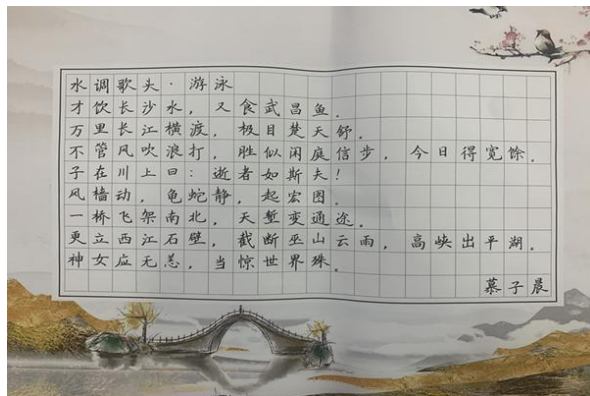 水调歌头·游泳
才饮长沙水，又食武昌鱼。
万里长江横渡，极目楚天舒。
不管风吹浪打，胜似闲庭信步，今日得宽馀。
子在川上曰：逝者如斯夫！
风樯动，龟蛇静，起宏图。
一桥飞架南北，天堑变通途。
更立西江石壁，截断巫山云雨，高峡出平湖。
神女应无恙，当惊世界殊。
慕子晨